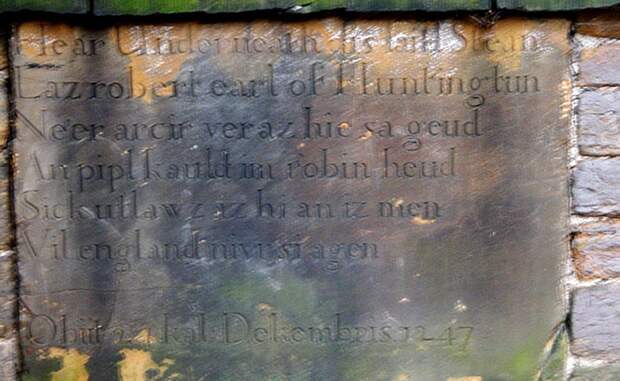 Hear Underneath dis laitl Stean
Laz robert earl of Huntingtun
Ne'er arcir ver az hie sa geud
An pipl kauld im robin heud
Sick utlawz iz hi an iz men
Vil england nivr si agen
Obiit 24 kal: Dekembris 1247